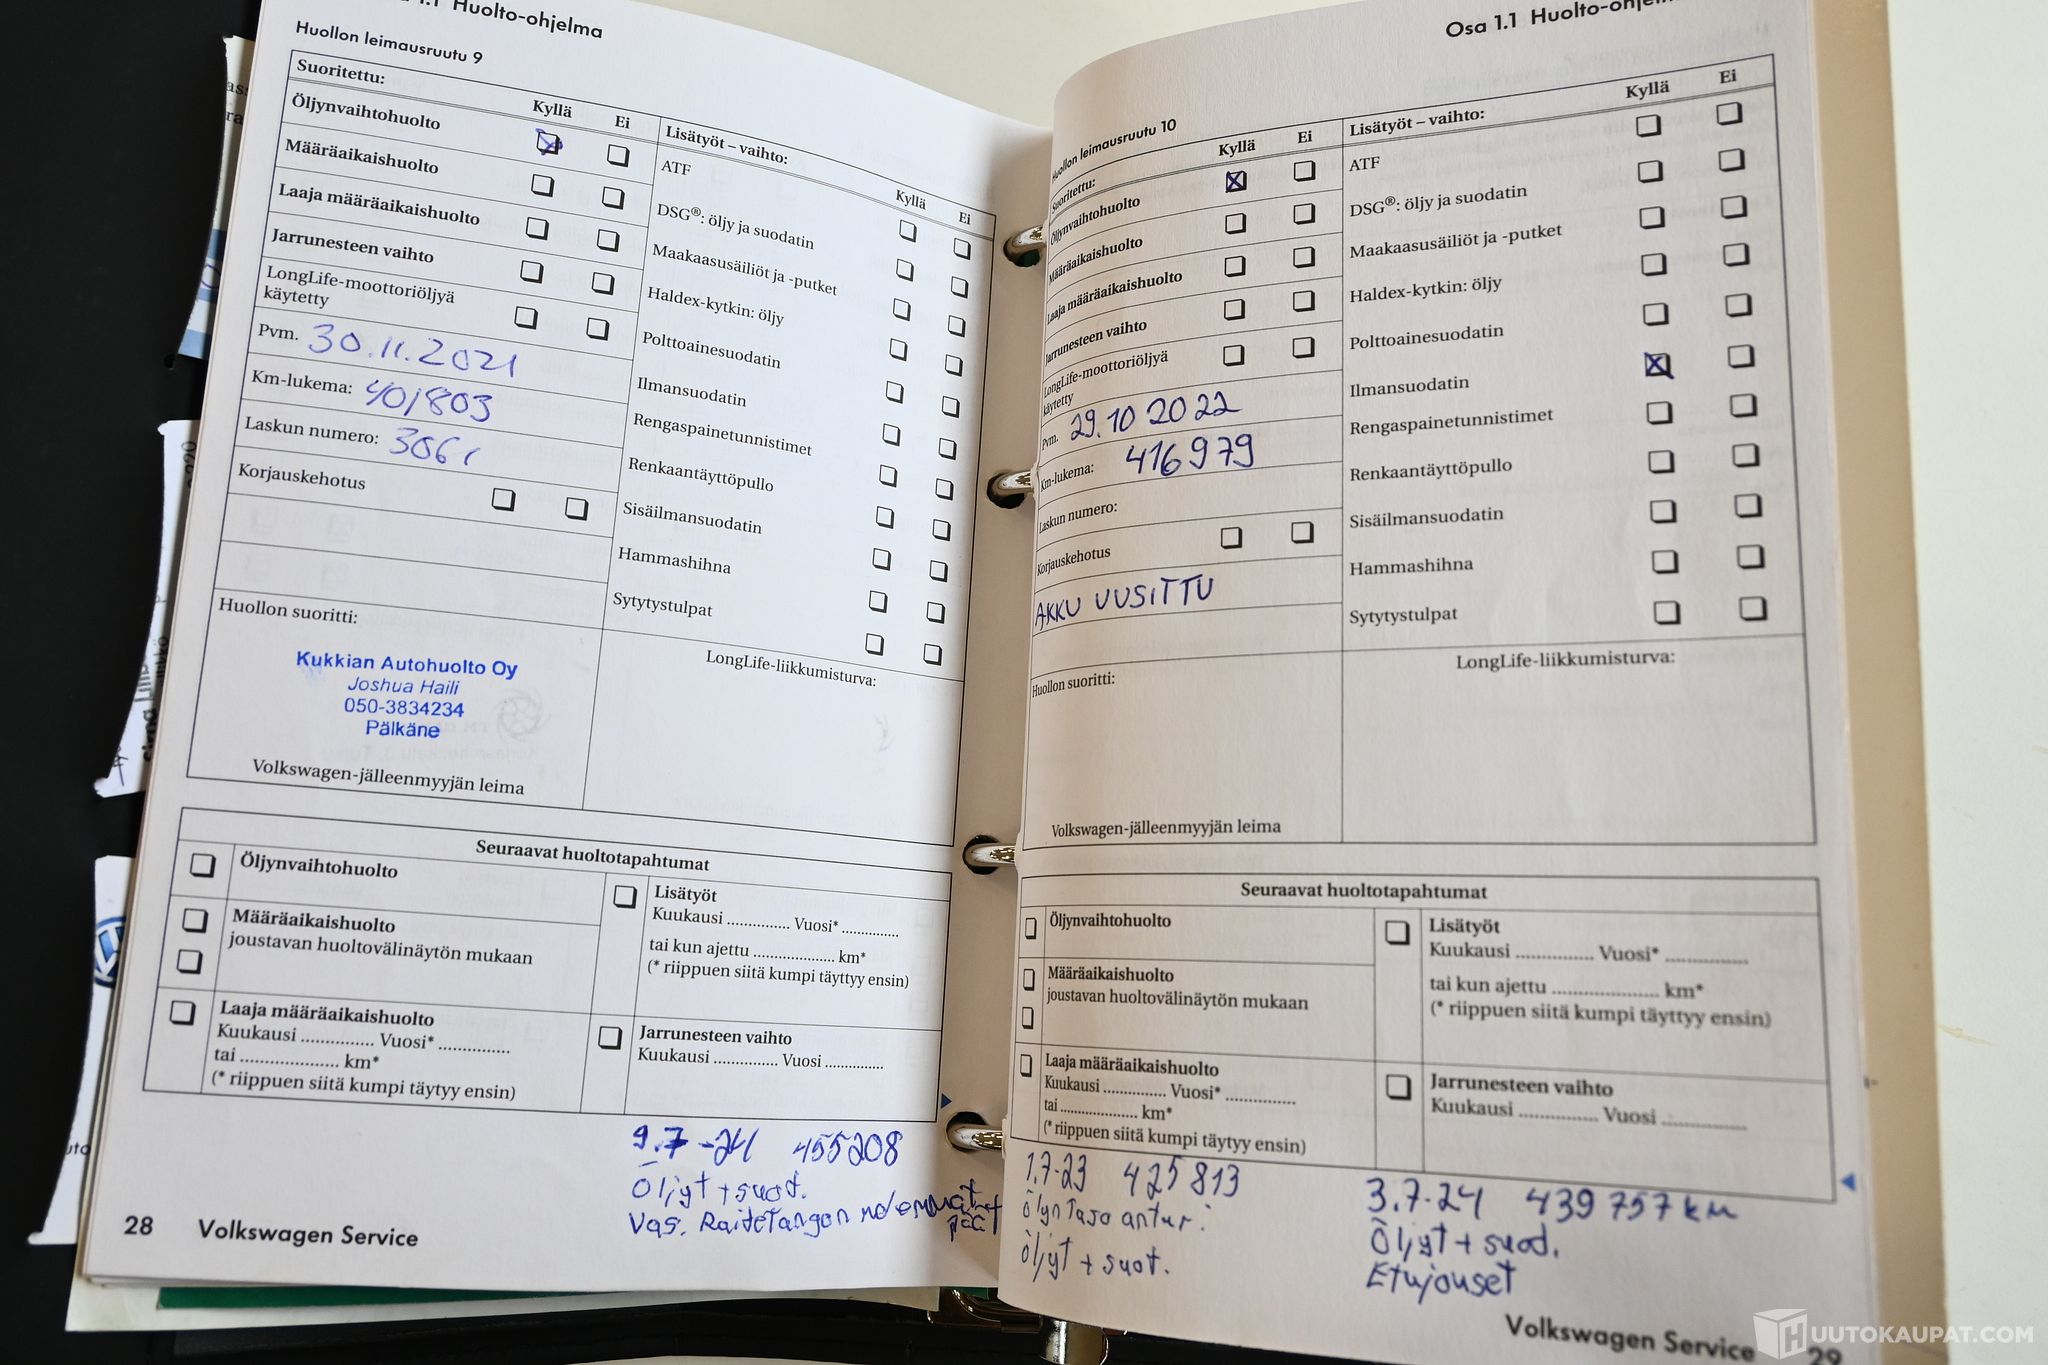 1.1 Huolto-ohjelma
Huollon leimausruutu 9
Suoritettu:
Kyllä Ei
Öljynvaihtohuolto
Määräaikaishuolto
Laaja määräaikaishuolto
Jarrunesteen vaihto
LongLife-moottoriöljyä
käytetty
Pvm. 30.11.2021
Km-lukema: 401803
Laskun numero: 3061
Korjauskehotus
Huollon suoritti:
Kukkian Autohuolto Oy
Joshua Haili
050-3834234
Pälkäne
Volkswagen-jälleenmyyjän leima
Lisätyöt – vaihto:
Kyllä Ei
ATF
DSG®: öljy ja suodatin
Maakaasusäiliöt ja -putket
Haldex-kytkin: öljy
Polttoainesuodatin
Ilmansuodatin
Rengaspainetunnistimet
Renkaantäyttöpullo
Sisäilmansuodatin
Hammashihna
Sytytystulpat
LongLife-liikkumisturva:
Seuraavat huoltotapahtumat
Öljynvaihtohuolto
Määräaikaishuolto
joustavan huoltovälinäytön mukaan
Laaja määräaikaishuolto
Kuukausi ............... Vuosi* ...............
tai .................... km*
(* riippuen siitä kumpi täytyy ensin)
Lisätyöt
Kuukausi ............... Vuosi* ...............
tai kun ajettu .................... km*
(* riippuen siitä kumpi täyttyy ensin)
Jarrunesteen vaihto
Kuukausi ............... Vuosi ...............
9.7-24 455208
Öljyt + suod.
Vas. Raidetangon
28 Volkswagen Service
Osa 1.1 Huolto-ohjelma
Huollon leimausruutu 10
Suoritettu:
Kyllä Ei
Öljynvaihtohuolto
Määräaikaishuolto
Laaja määräaikaishuolto
Jarrunesteen vaihto
LongLife-moottoriöljyä
käytetty
Pvm. 29.10 2022
Km-lukema: 416979
Laskun numero:
Korjauskehotus
AKKU UUSITTU
Huollon suoritti:
Volkswagen-jälleenmyyjän leima
Lisätyöt – vaihto:
Kyllä Ei
ATF
DSG®: öljy ja suodatin
Maakaasusäiliöt ja -putket
Haldex-kytkin: öljy
Polttoainesuodatin
Ilmansuodatin
Rengaspainetunnistimet
Renkaantäyttöpullo
Sisäilmansuodatin
Hammashihna
Sytytystulpat
LongLife-liikkumisturva:
Seuraavat huoltotapahtumat
Öljynvaihtohuolto
Määräaikaishuolto
joustavan huoltovälinäytön mukaan
Laaja määräaikaishuolto
Kuukausi ............... Vuosi* ...............
tai .................... km*
(* riippuen siitä kumpi täytyy ensin)
Lisätyöt
Kuukausi ............... Vuosi* ...............
tai kun ajettu .................... km*
(* riippuen siitä kumpi täyttyy ensin)
Jarrunesteen vaihto
Kuukausi ............... Vuosi ...............
1.7-23 425813
Ölyntaso antur:
Öljyt + suot.
3.7-24 439757 km
Öljyt + suod.
Etujouset
Volkswagen Service 29
HUUTOKAUPAT.COM